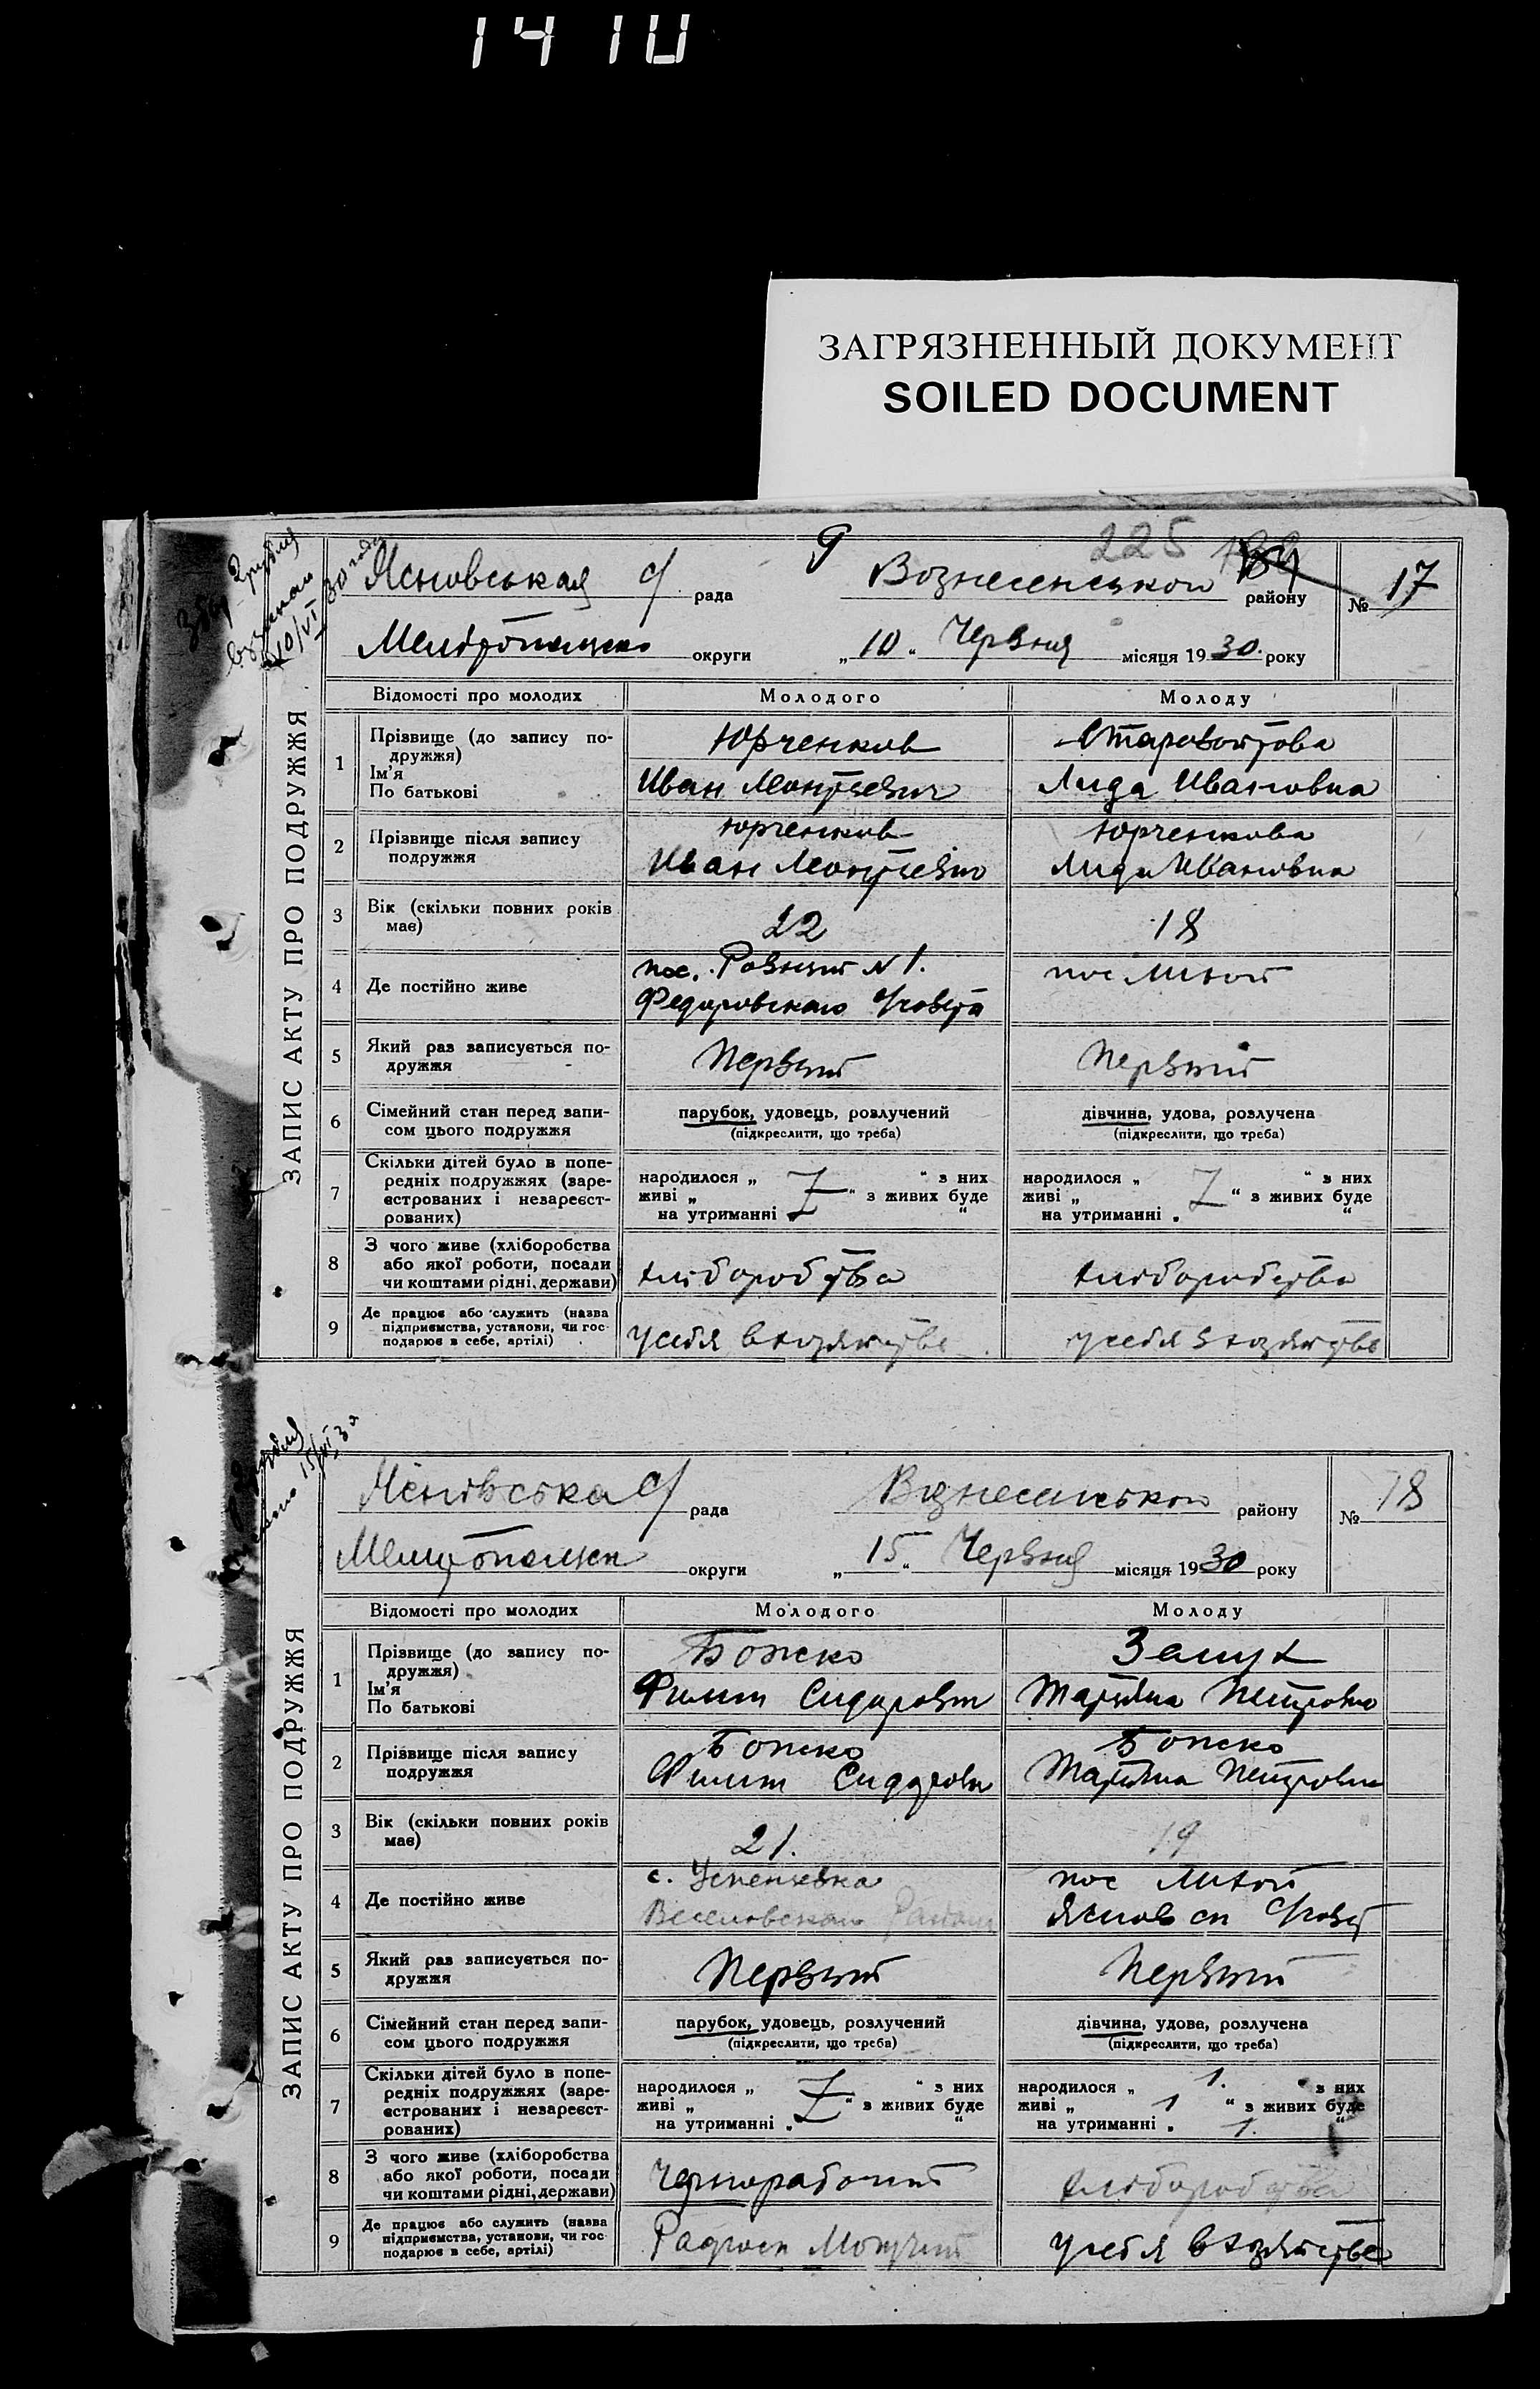 1410
ЗАГРЯЗНЕННЫЙ ДОКУМЕНТ
SOILED DOCUMENT
9 225
ЗАПИС АКТУ ПРО ПОДРУЖЖЯ
Ясновськая с/ рада Вознесенського району № 17
округи „10“ Червня місяця 1930. року
Відомості про молодих Молодого Молоду
1 Прізвище (до запису по-
дружжя)
Ім'я
По батькові
Юрченков
Иван
Старовойтова
Лида Ивановна
2 Прізвище після запису
подружжя
Юрченков
Иван
Юрченкова
Лида Ивановна
3 Вік (скільки повних років
має)
22 18
4 Де постійно живе
пос. Ровный N 1.
Федоровского с/совета
пос
5 Який раз записується по-
дружжя
Первый Первый
6 Сімейний стан перед запи-
сом цього подружжя
парубок, удовець, розлучений
(підкреслити, що треба)
дівчина, удова, розлучена
(підкреслити, що треба)
7 Скільки дітей було в попе-
редніх подружжях (заре-
єстрованих і незареєст-
рованих)
народилося „ “ з них
живі „ “ з живих буде
на утриманні „ “
народилося „ “ з них
живі „ “ з живих буде
на утриманні „ “
8 З чого живе (хліборобства
або якої роботи, посади
чи коштами рідні, держави)
хлібороб ства хліборобства
9 Де працює або служить (назва
підприємства, установи, чи гос-
подарює в себе, артілі)
у себя в хозяйстве у себя в хозяйстве
ЗАПИС АКТУ ПРО ПОДРУЖЖЯ
Яснівська с/ рада Вознесенського району № 18
округи „15“ Червня місяця 1930 року
Відомості про молодих Молодого Молоду
1 Прізвище (до запису по-
дружжя)
Ім'я
По батькові
Божко
Филип Сидорович
Татьяна Петровна
2 Прізвище після запису
подружжя
Божко
Филип
Божко
Татьяна Петровна
3 Вік (скільки повних років
має)
21. 19
4 Де постійно живе
с. Успеновка
Веселовского Района
пос
Яснов ск с/совет
5 Який раз записується по-
дружжя
Первый Первый
6 Сімейний стан перед запи-
сом цього подружжя
парубок, удовець, розлучений
(підкреслити, що треба)
дівчина, удова, розлучена
(підкреслити, що треба)
7 Скільки дітей було в попе-
редніх подружжях (заре-
єстрованих і незареєст-
рованих)
народилося „ “ з них
живі „ “ з живих буде
на утриманні „ “
народилося „ 1. “ з них
живі „ 1 “ з живих буде
на утриманні „ 1. “
8 З чого живе (хліборобства
або якої роботи, посади
чи коштами рідні, держави)
Чернорабочий хліборобства
9 Де працює або служить (назва
підприємства, установи, чи гос-
подарює в себе, артілі)
у себя в хозяйстве